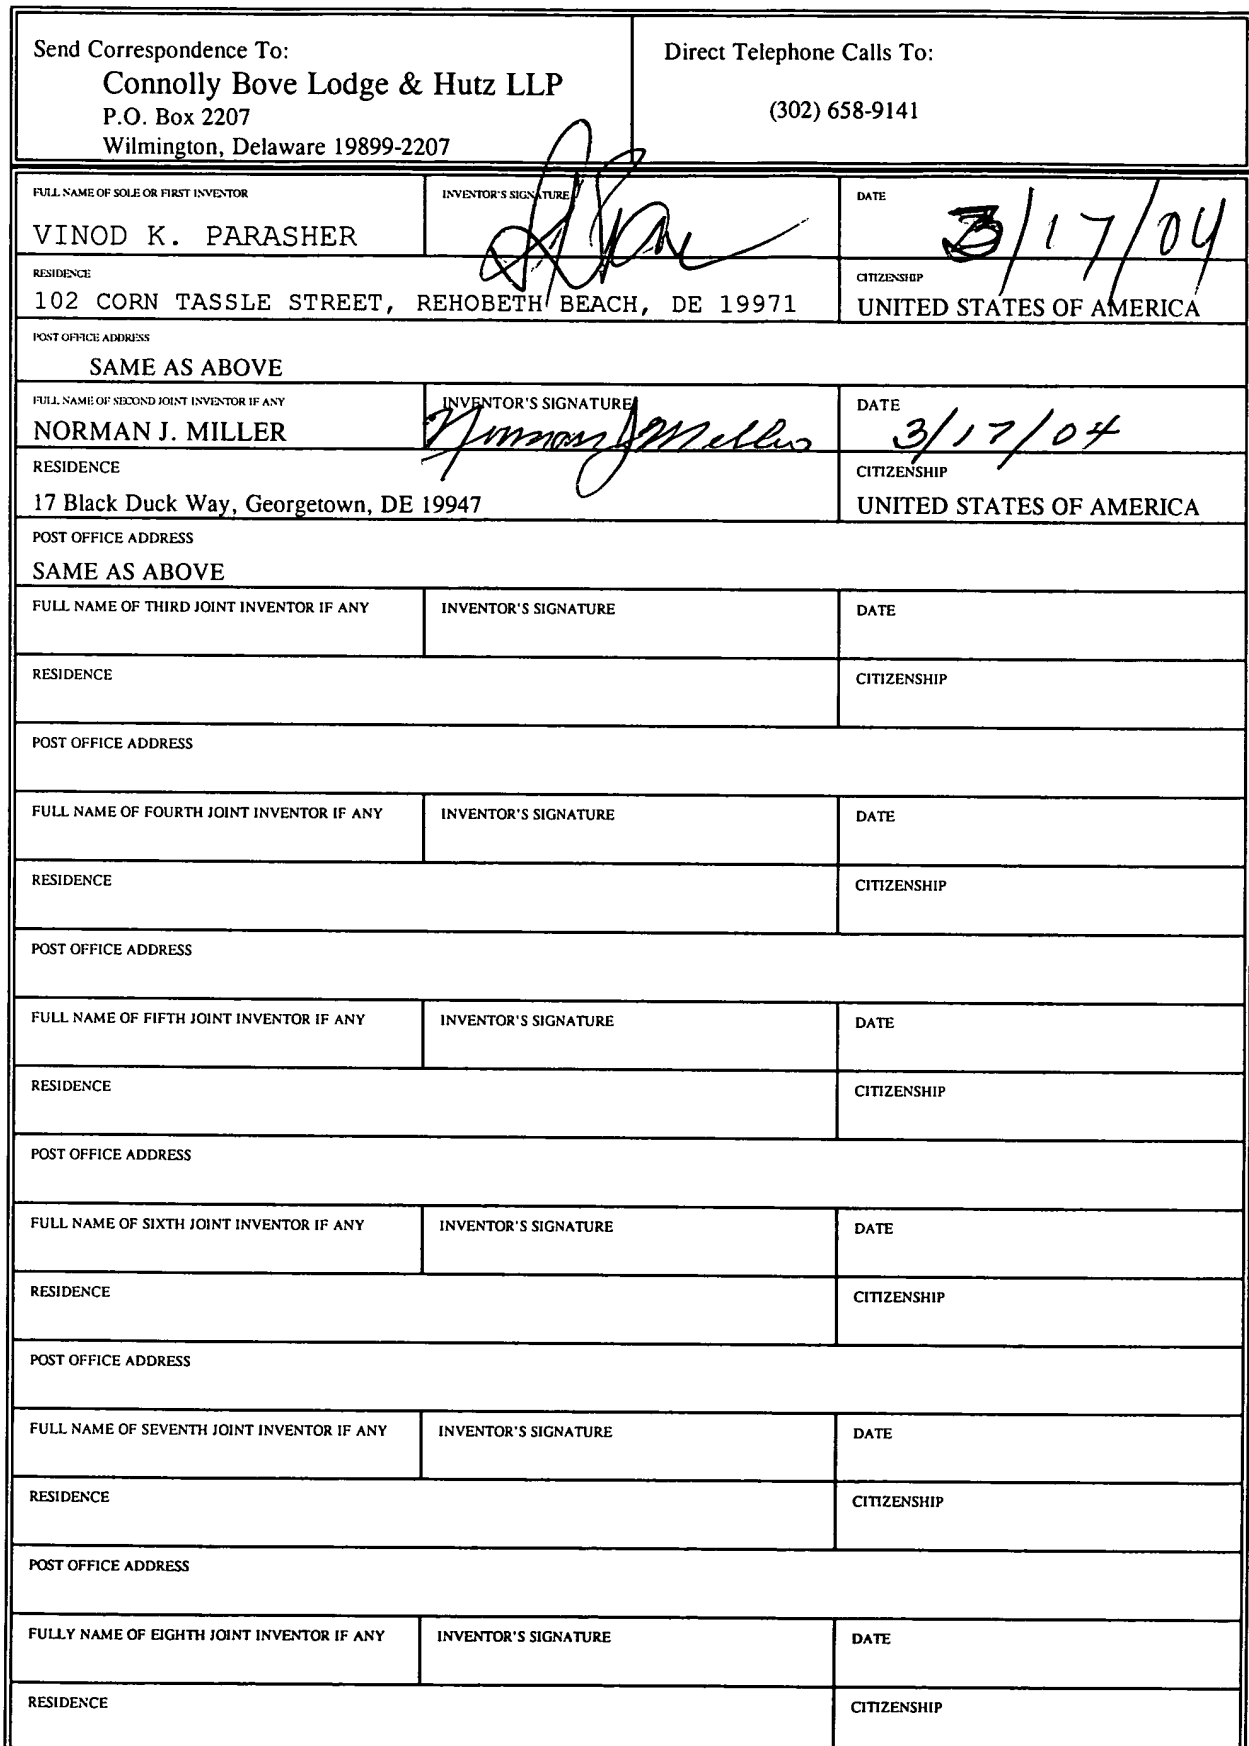 Send Correspondence To:
Connolly Bove Lodge & Hutz LLP
P.O. Box 2207
Wilmington, Delaware 19899-2207
Direct Telephone Calls To:
(302) 658-9141
FULL NAME OF SOLE OR FIRST INVENTOR
VINOD K. PARASHER
INVENTOR'S SIGNATURE
DATE
3/17/04
RESIDENCE
102 CORN TASSLE STREET, REHOBETH BEACH, DE 19971
CITIZENSHIP
UNITED STATES OF AMERICA
POST OFFICE ADDRESS
SAME AS ABOVE
FULL NAME OF SECOND JOINT INVENTOR IF ANY
NORMAN J. MILLER
INVENTOR'S SIGNATURE
Norman J Miller
DATE
3/17/04
RESIDENCE
17 Black Duck Way, Georgetown, DE 19947
CITIZENSHIP
UNITED STATES OF AMERICA
POST OFFICE ADDRESS
SAME AS ABOVE
FULL NAME OF THIRD JOINT INVENTOR IF ANY
INVENTOR'S SIGNATURE
DATE
RESIDENCE
CITIZENSHIP
POST OFFICE ADDRESS
FULL NAME OF FOURTH JOINT INVENTOR IF ANY
INVENTOR'S SIGNATURE
DATE
RESIDENCE
CITIZENSHIP
POST OFFICE ADDRESS
FULL NAME OF FIFTH JOINT INVENTOR IF ANY
INVENTOR'S SIGNATURE
DATE
RESIDENCE
CITIZENSHIP
POST OFFICE ADDRESS
FULL NAME OF SIXTH JOINT INVENTOR IF ANY
INVENTOR'S SIGNATURE
DATE
RESIDENCE
CITIZENSHIP
POST OFFICE ADDRESS
FULL NAME OF SEVENTH JOINT INVENTOR IF ANY
INVENTOR'S SIGNATURE
DATE
RESIDENCE
CITIZENSHIP
POST OFFICE ADDRESS
FULLY NAME OF EIGHTH JOINT INVENTOR IF ANY
INVENTOR'S SIGNATURE
DATE
RESIDENCE
CITIZENSHIP